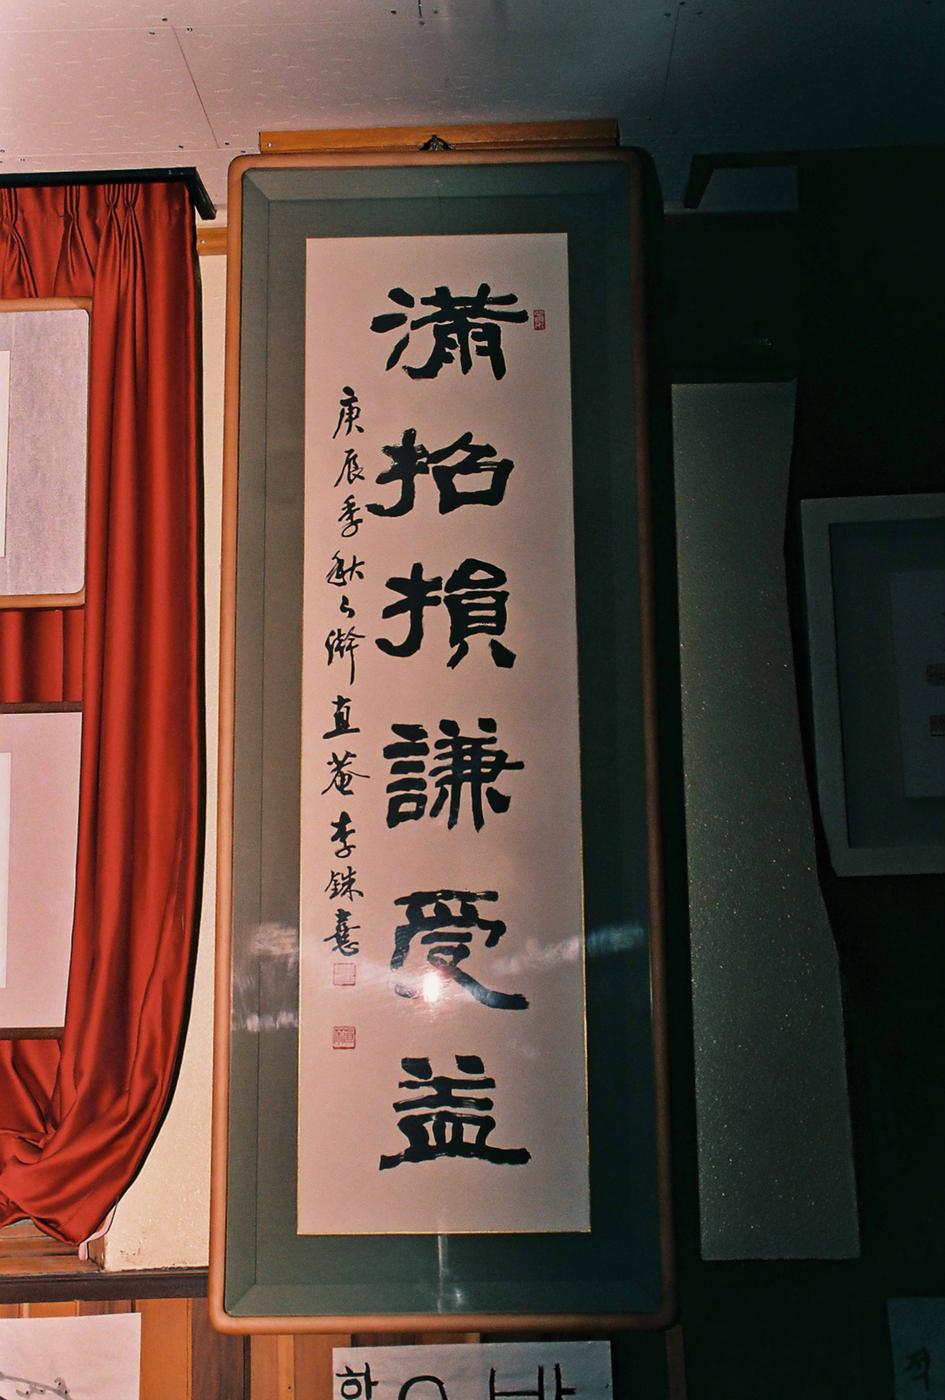 滿招損謙受益
庚辰季秋之澣直菴李銖憙
하